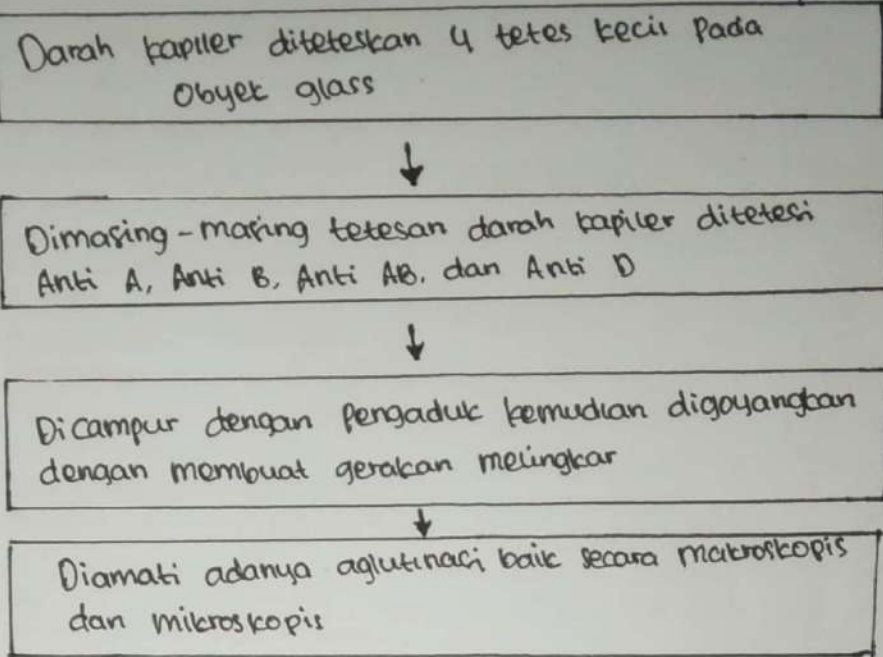 Darah kapiler diteteskan 4 tetes kecil pada
Obyek glass
↓
Dimasing-masing tetesan darah kapiler ditetesi
Anti A, Anti B, Anti AB, dan Anti D
↓
Dicampur dengan pengaduk kemudian digoyangkan
dengan membuat gerakan melingkar
↓
Diamati adanya aglutinaci baik secara makroskopis
dan mikroskopis